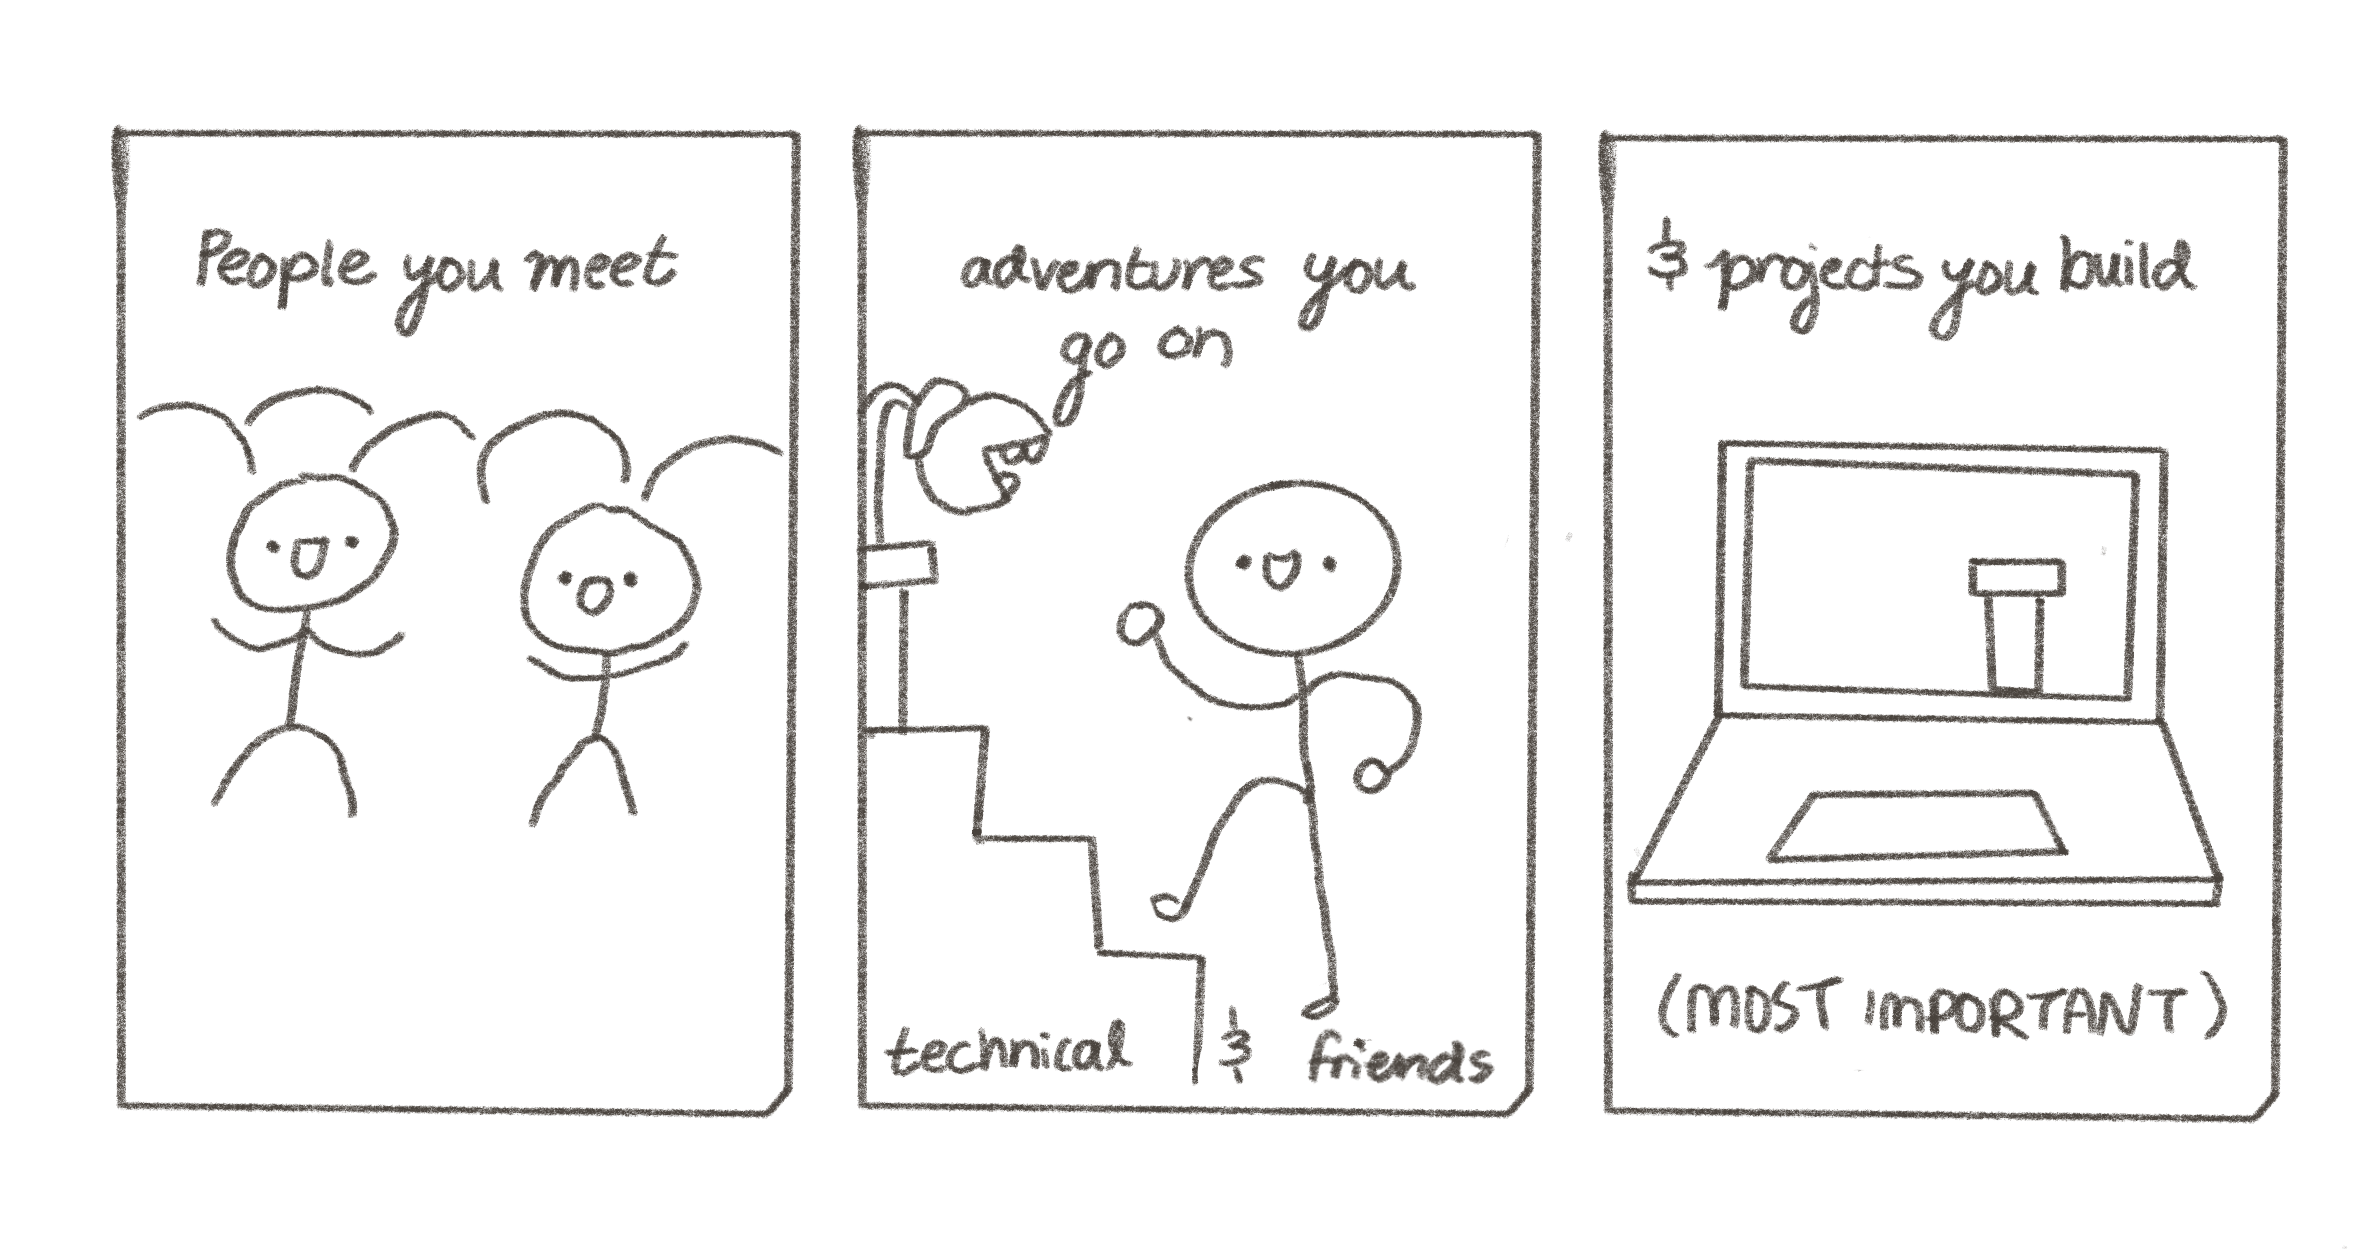 People you meet
adventures you
go on
technical & friends
& projects you build
(MOST IMPORTANT)